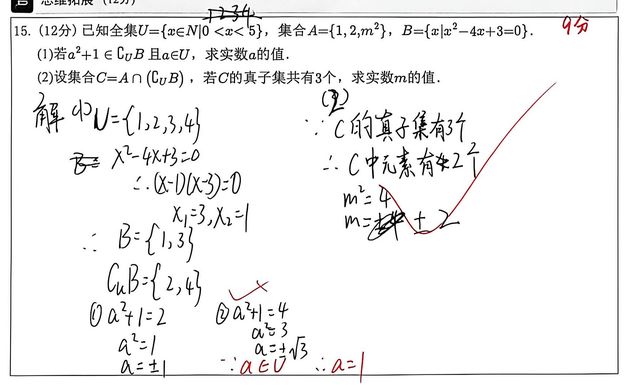 思维拓展（12分）
1 2 3 4
15. (12分) 已知全集U={x∈N|0<x<5}，集合A={1,2,m²}，B={x|x²-4x+3=0}.
9分
(1)若a²+1∈∁UB且a∈U，求实数a的值.
(2)设集合C=A∩(∁UB)，若C的真子集共有3个，求实数m的值.
解 (1) U={1,2,3,4}
x²-4x+3=0
∴(x-1)(x-3)=0
x₁=3, x₂=1
∴ B={1,3}
CuB={2,4}
① a²+1=2
a²=1
a=±1
② a²+1=4
a²=3
a=±√3
∵a∈U ∴a=1
(2)
∵C的真子集有3个
∴C中元素有2个
m²=4
m=±2